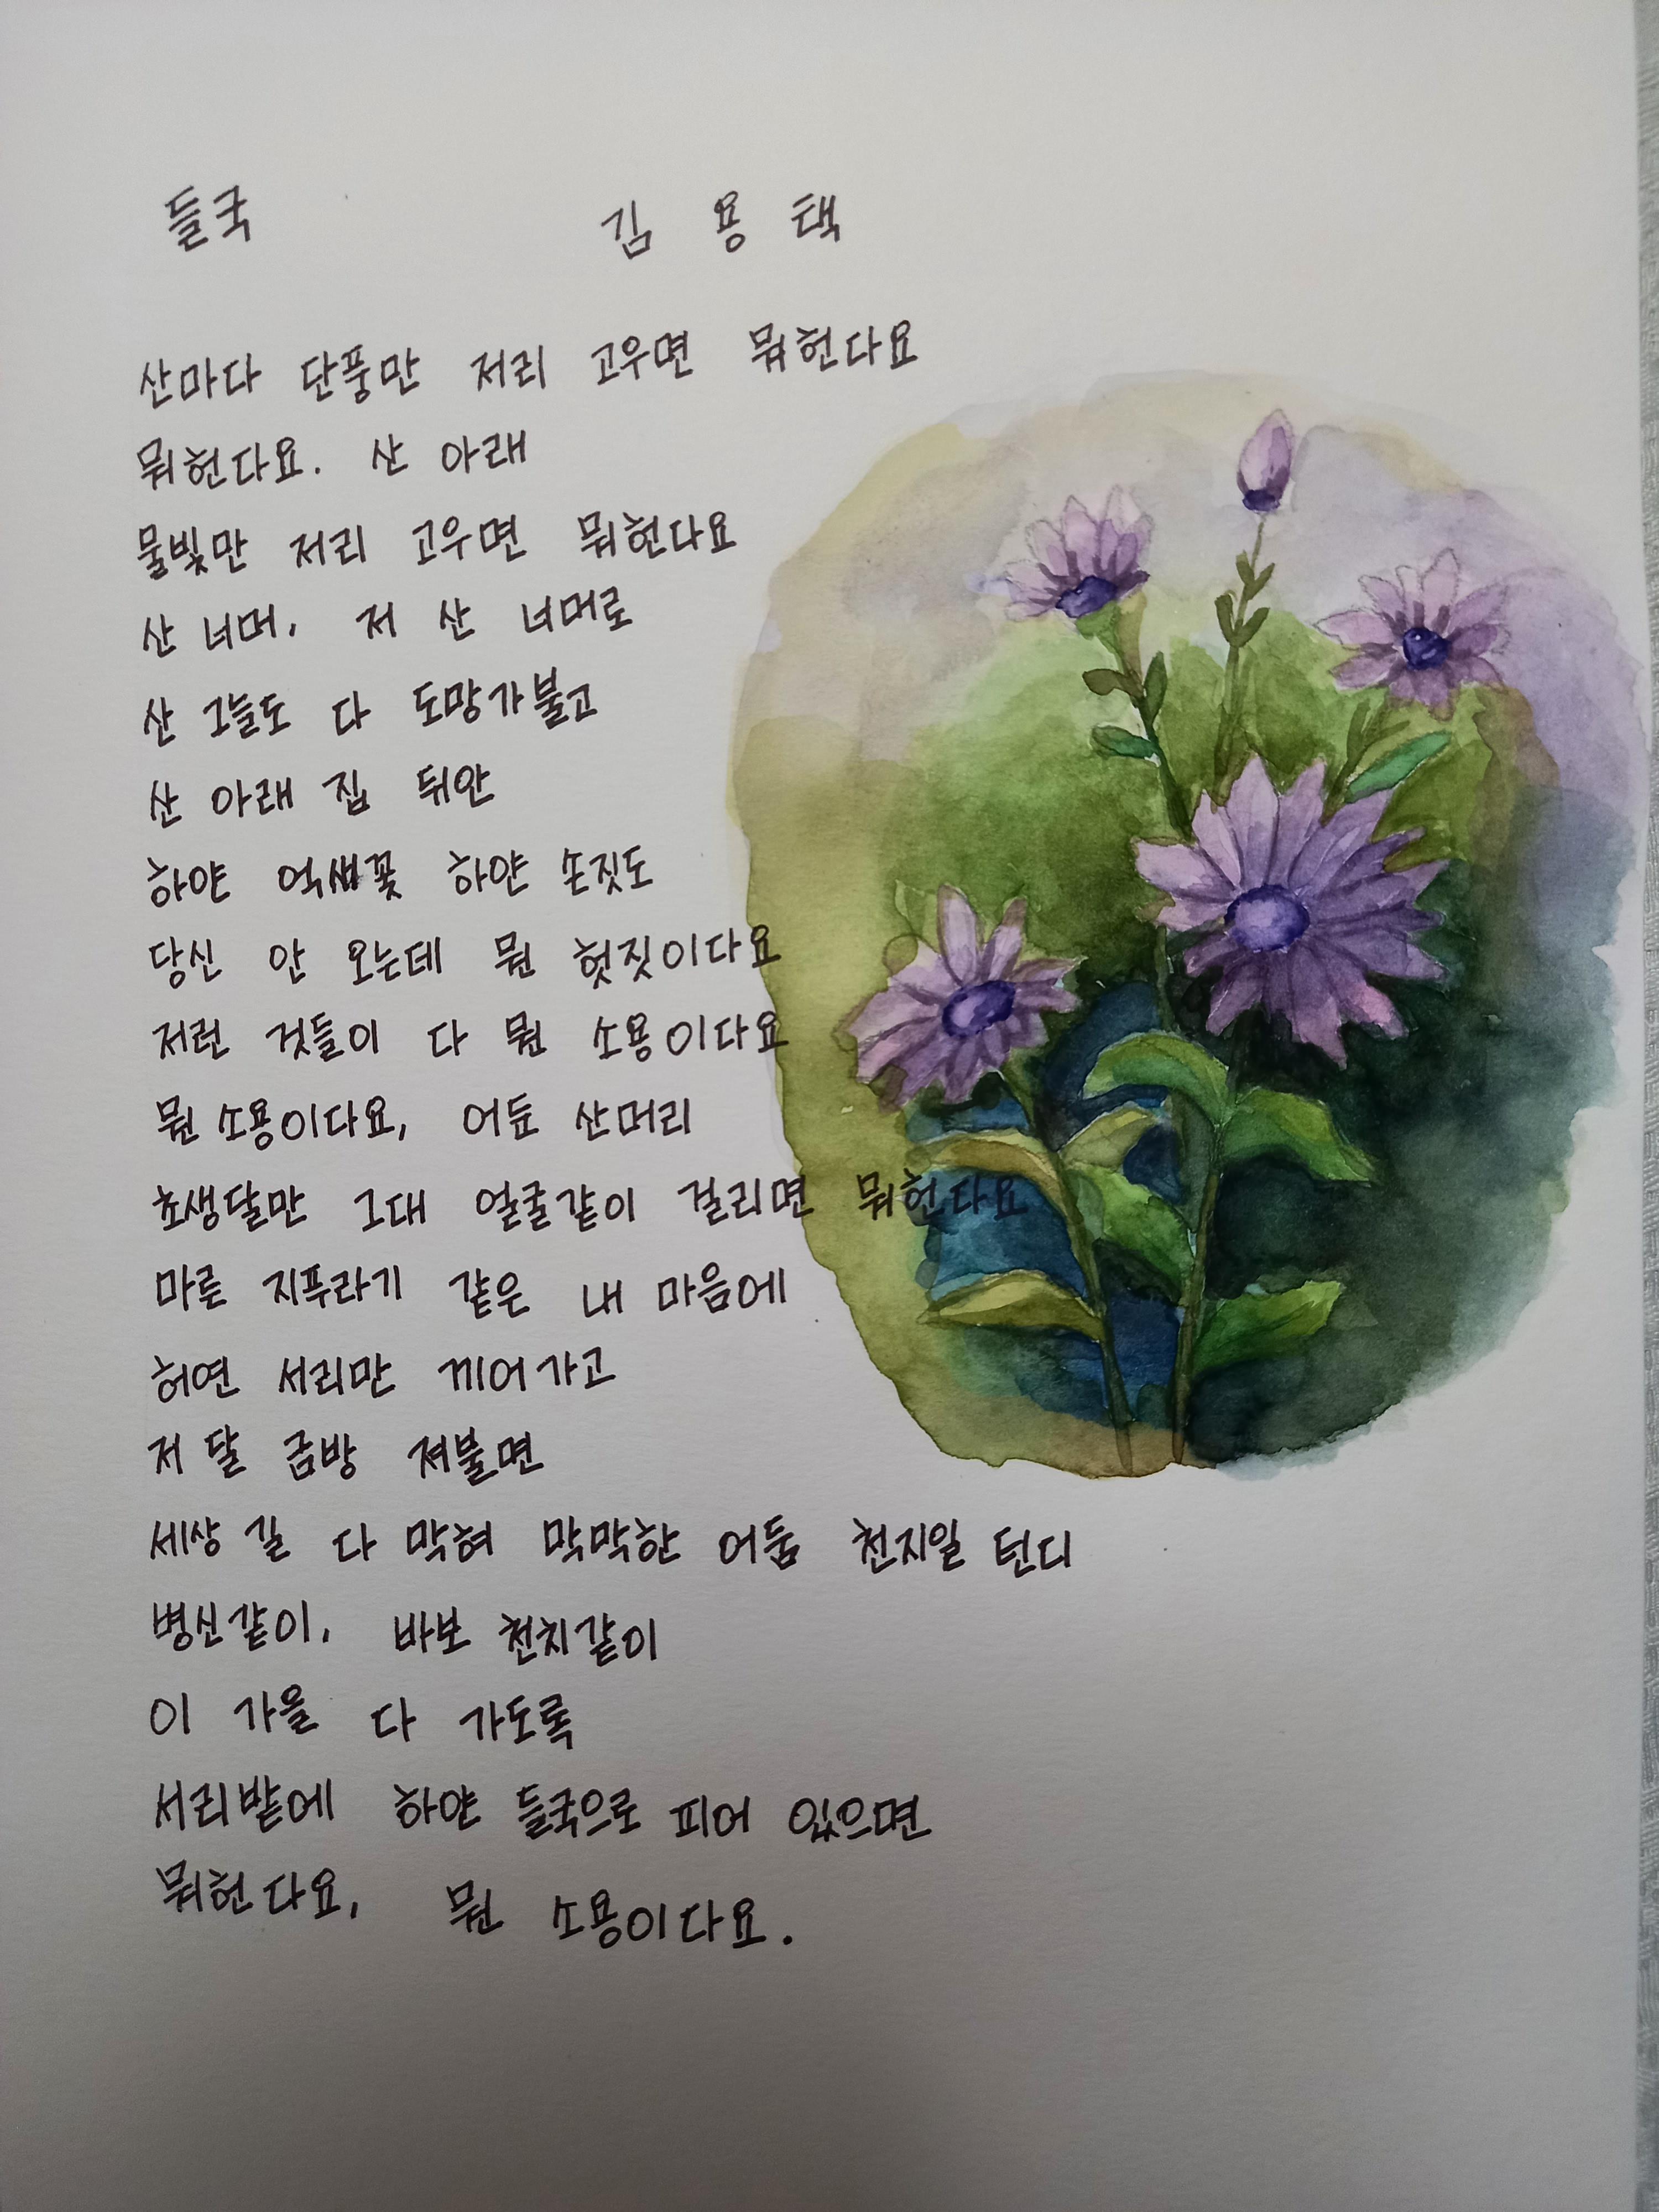 들국 김 용 택
산마다 단풍만 저리 고우면 뭐헌다요
뭐헌다요. 산 아래
물빛만 저리 고우면 뭐헌다요
산 너머, 저 산 너머로
산 그늘도 다 도망가불고
산 아래 집 뒤안
하얀 억새꽃 하얀 손짓도
당신 안 오는데 뭔 헛짓이다요
저런 것들이 다 뭔 소용이다요
뭔 소용이다요, 어둔 산머리
초생달만 그대 얼굴같이 걸리면 뭐헌다요
마른 지푸라기 같은 내 마음에
허연 서리만 끼어가고
저 달 금방 져불면
세상 길 다 막혀 막막한 어둠 천지일 턴디
병신같이, 바보 천치같이
이 가을 다 가도록
서리밭에 하얀 들국으로 피어 있으면
뭐헌다요, 뭔 소용이다요.